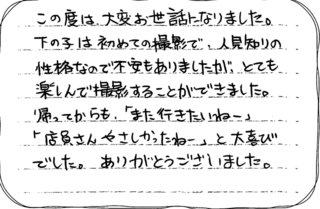 この度は、大変お世話になりました。
下の子は初めての撮影で、人見知りの
性格なので不安もありましたが、とても
楽しんで撮影することができました。
帰ってからも、「また行きたいねー」
「店員さんやさしかったねー」と大喜び
でした。ありがとうございました。